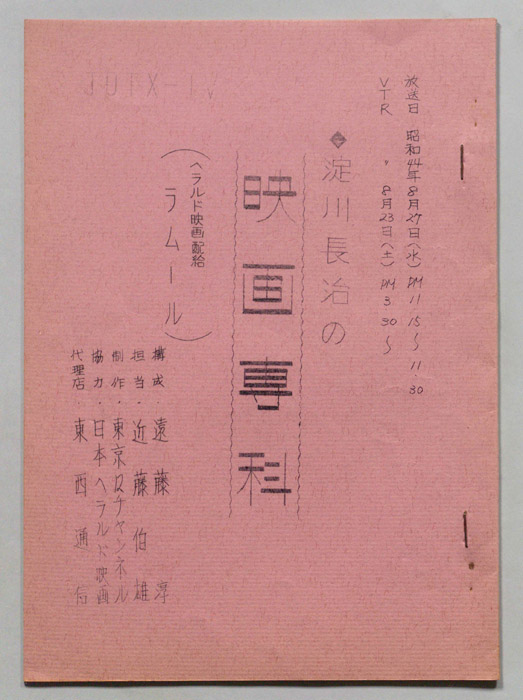 放送日 昭和44年8月27日(水)PM 11 15〜11.30
VTR 〃 8月23日(土)PM 3 30〜
淀川長治の
映画専科
ヘラルド映画配給
(ラムール)
構成 遠藤 淳
担当・近藤伯雄
制作・東京12チャンネル
協力・日本ヘラルド映画
代理店・東西通信